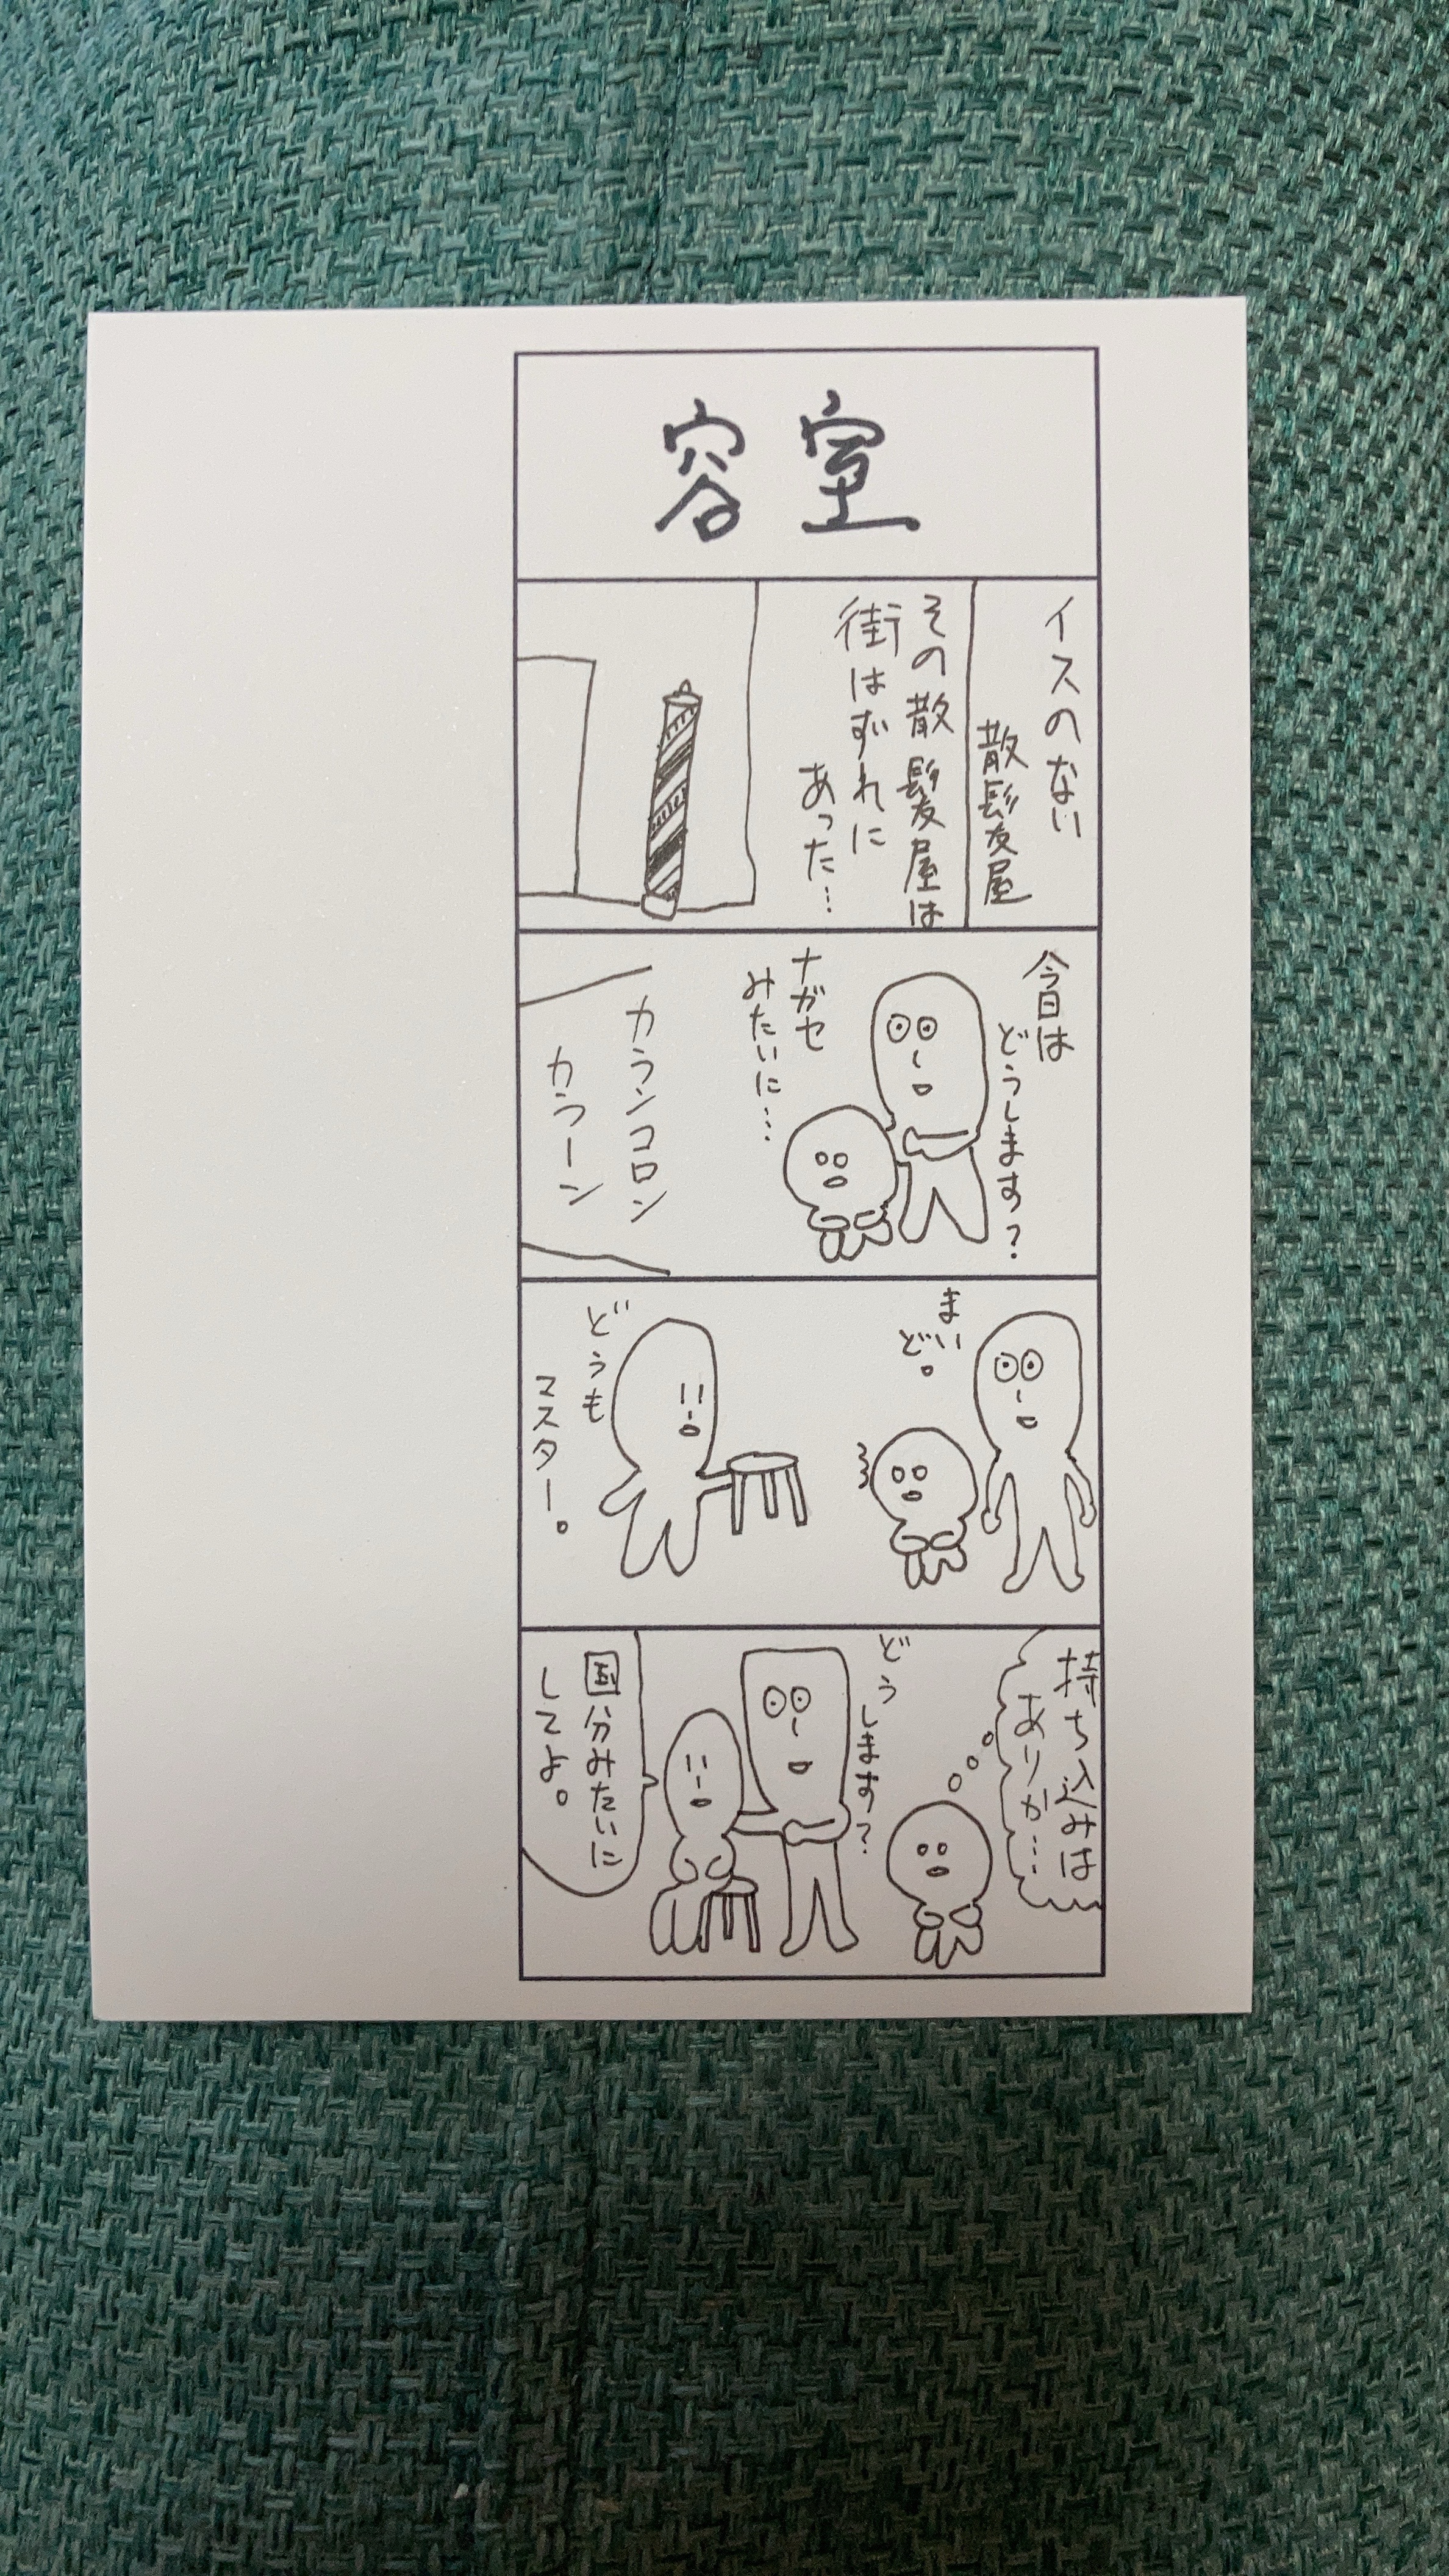 容室
イスのない
散髪屋
その散髪屋は
街はずれに
あった…
今日は
どうします?
ナガセ
みたいに…
カランコロン
カラーン
まいど。
どうも
マスター。
持ち込みは
ありか…
どうします?
国分みたいに
してよ。